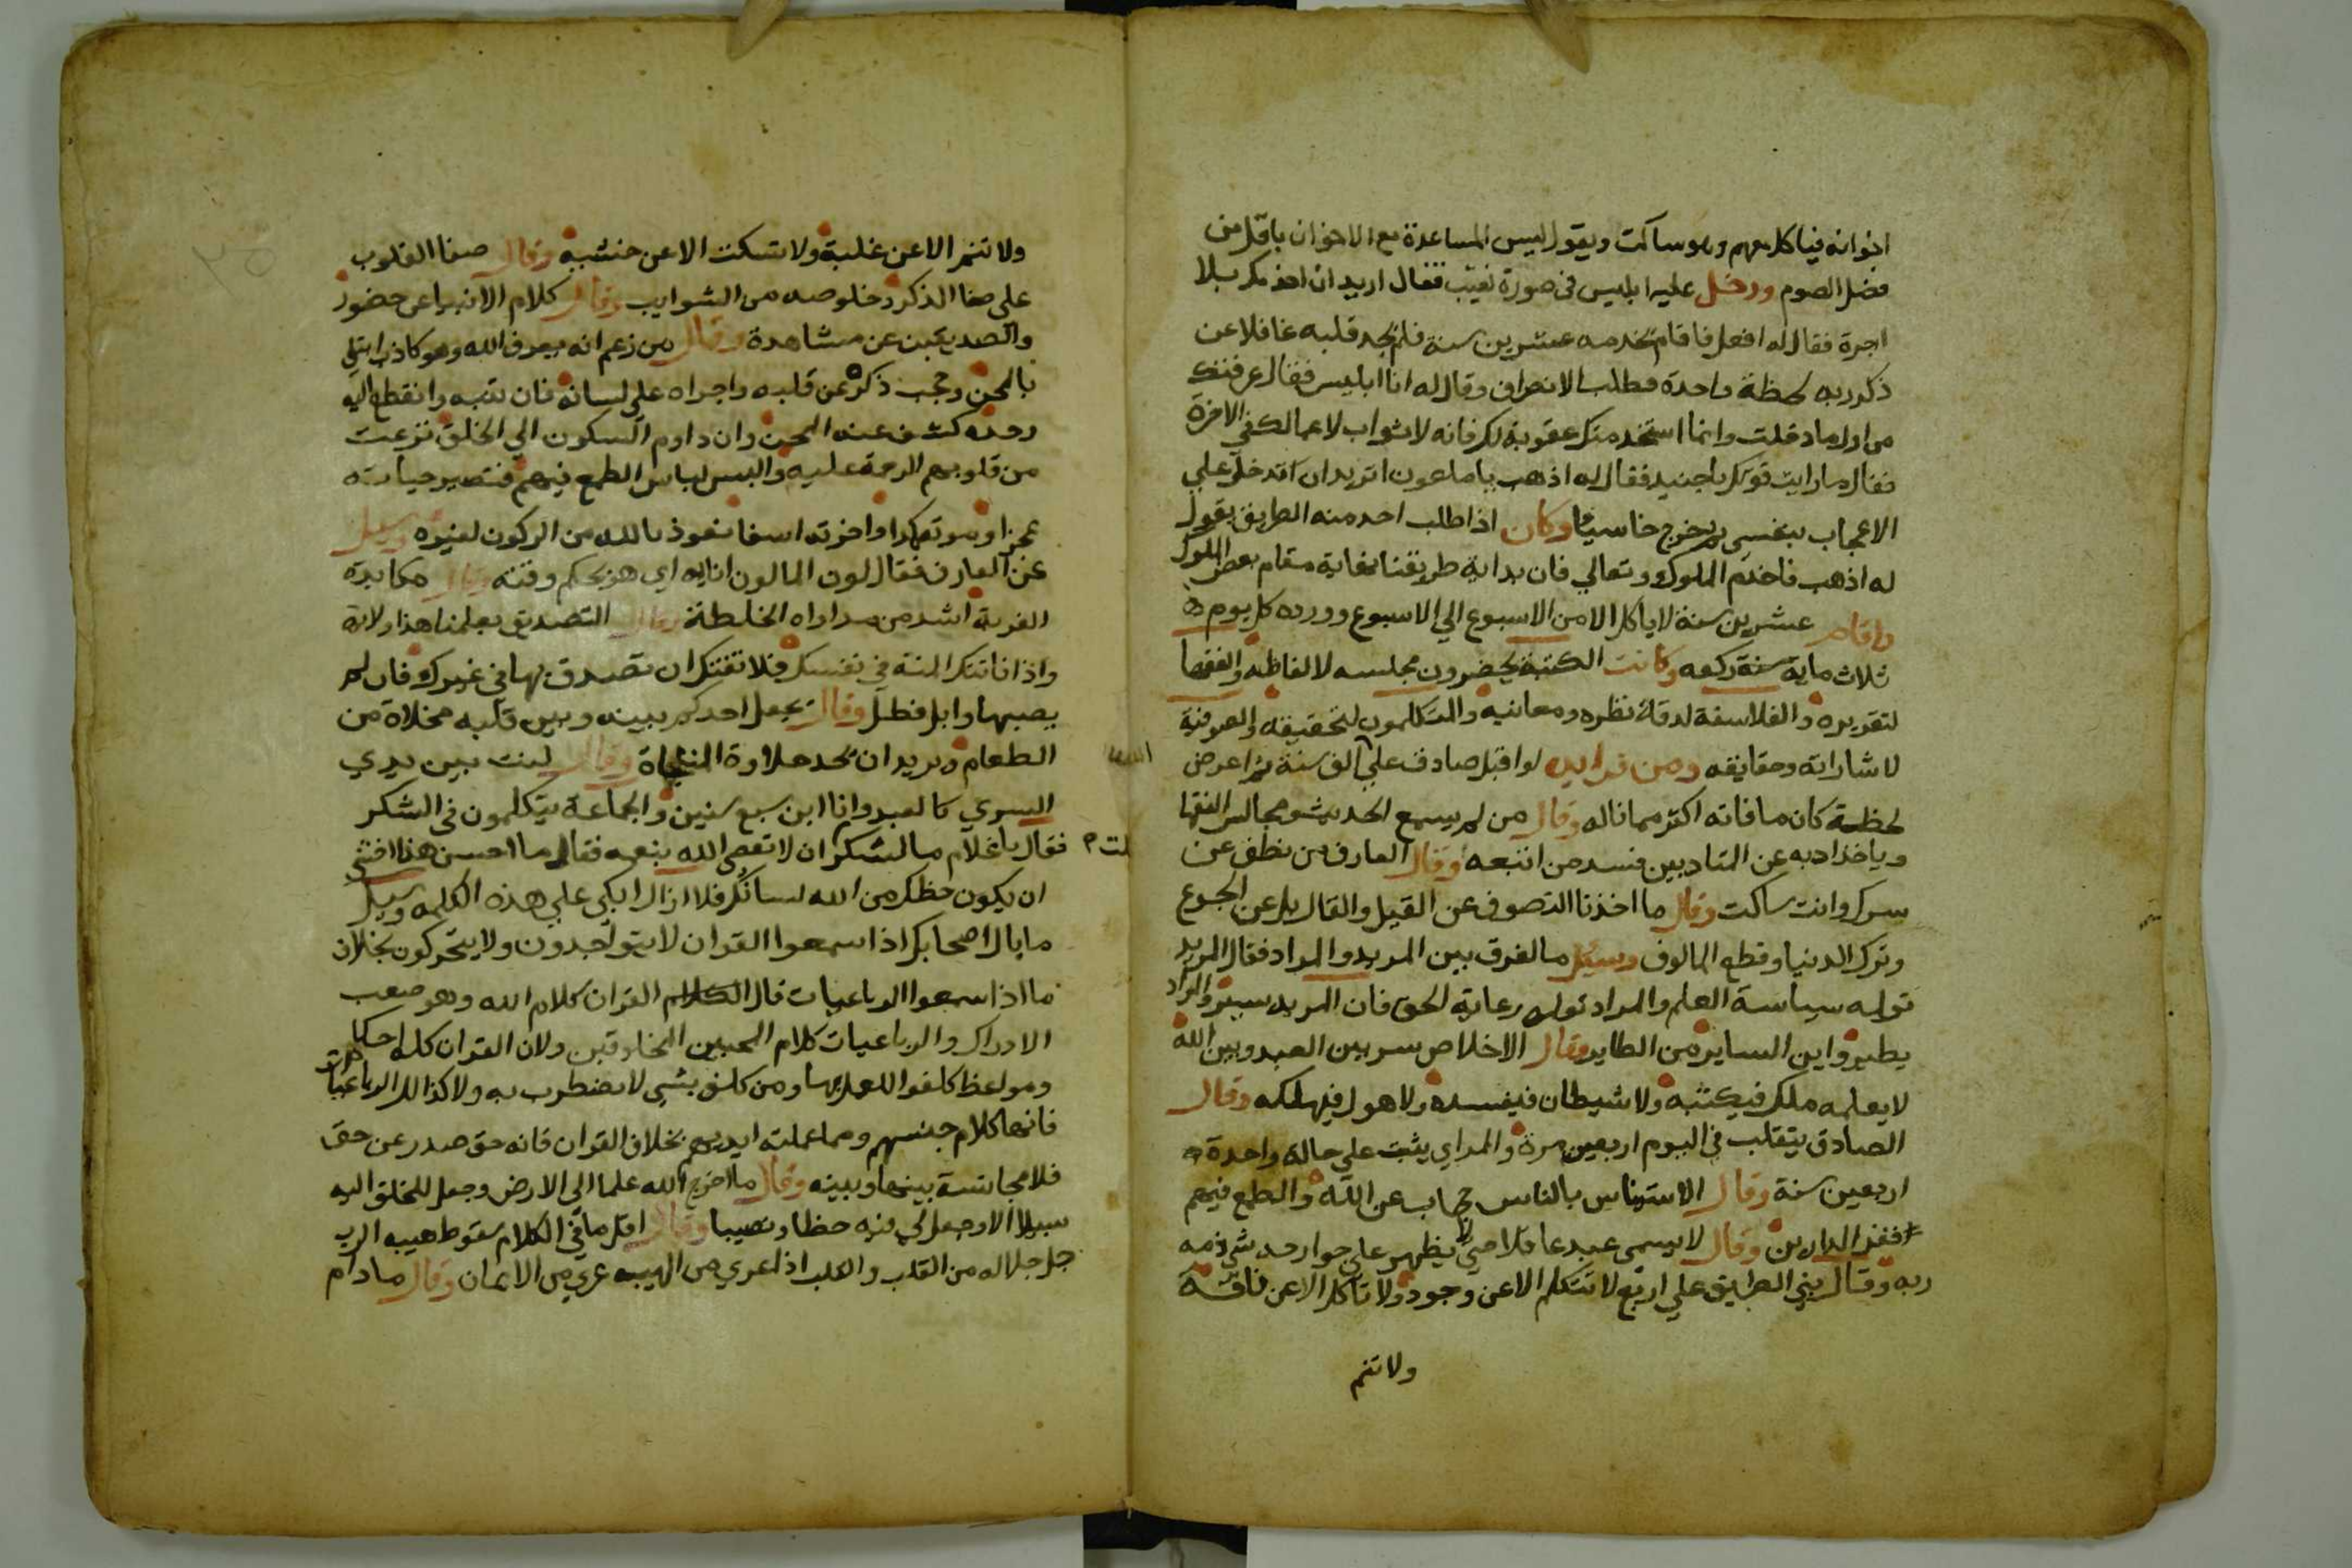 اخوانه فياكل معهم وهو ساكت ويقول ليس المساعدة مع الاخوان باقل من
فضل الصوم ودخل عليه ابليس في صورة نقيب فقال اريد ان اخدمك بلا
اجرة فقال له افعل فاقام يخدمه عشرين سنة فلم يجد قلبه غافلا عن
ذكر ربه لحظة واحدة فطلب الانصراف وقال له انا ابليس فقال عرفتك
من اول ما دخلت وانما استخدمتك عقوبة لك فانه لا ثواب لاعمالك في الاخرة
فقال ما رايت قوتك يا جنيد فقال له اذهب يا ملعون اتريد ان تدخل علي
الاعجاب بنفسي ثم خرج خاسيا وكان اذا طلب احد منه الطريق يقول
له اذهب فاخدم الملوك وتعالي فان بداية طريقنا نهاية مقام بعض الملوك
واقام عشرين سنة لا ياكل الا من الاسبوع الي الاسبوع وورده كل يوم
ثلاث ماية سنة ركعه وكانت الكتبة يحضرون مجلسه لالفاظه والفقها
لتقريره والفلاسفة لدقة نظره ومعانيه والمتكلمون لتحقيقه والصوفية
لاشاراته وحقايقه ومن فوايده لو اقبل صادق علي الف سنة ثم اعرض
لحظة كان ما فاته اكثر مما ناله وقال من لم يسمع الحديث ومجالس الفقها
وياخذ ادبه عن المتادبين فسد من اتبعه وقال العارف من نطق عن
سرك وانت ساكت وقال ما اخذنا التصوف عن القيل والقال بل عن الجوع
وترك الدنيا وقطع المالوف وسئل ما الفرق بين المريد والمراد فقال المريد
توليه سياسة العلم والمراد توليه رعاية الحق فان المريد يسير والمراد
يطير واين الساير من الطاير وقال الاخلاص سر بين العبد وبين الله
لا يعلمه ملك فيكتبه ولا شيطان فيفسده ولا هول فيهلكه وقال
الصادق يتقلب في اليوم اربعين مرة والمراي يثبت علي حالة واحدة
اربعين سنة وقال الاستيناس بالناس حجاب عن الله والطمع فيهم
فقر الدارين وقال لا يسمي عبد عاقلا حتي لا يظهر علي جوارحه شي ذمه
ربه وقال بني الطريق علي اربع لا تتكلم الا عن وجود ولا تاكل الا عن فاقة
ولا تنم
ولا تنم الا عن غلبة ولا تسكت الا عن خشية وقال صفا القلوب
علي صفا الذكر وخلوصه من الشوايب وقال كلام الانبيا عن حضور
والصديقين عن مشاهدة وقال من زعم انه يعرف الله وهو كاذب ابتلي
بالمحن وحجب ذكره عن قلبه واجراه علي لسانه فان تنبه وانقطع اليه
وحده كشف عنه المحن وان داوم السكون الي الخلق نزعت
من قلوبهم الرحمة عليه والبس لباس الطمع فيهم فتصير حياته
عجزا وموته كمدا واخرته اسفا نعوذ بالله من الركون لغيره وسيل
عن العارف فقال لون الما لون انايه اي هو بحكم وقته وقال مكابدة
العزبة اشد من مداراه الخلطة وقال التصديق بعلمنا هذا ولاية
واذا فاتتك المنة في نفسك فلا تفتك ان تصدق بها في غيرك فان لم
يصبها وابل فطل وقال يجعل احدكم بينه وبين قلبه مخلاة من
الطعام ويريد ان يجد حلاوة المناجاة وقال لنت بين يدي
السري كالعبد وانا ابن سبع سنين والجماعة يتكلمون في الشكر
فقال يا غلام ما الشكر ان لا تعصي الله بنعمه فقال ما احسن هذا اخشي
ان يكون حظك من الله لسانك فلا ازال ابكي علي هذه الكلمه وسيل
ما بال اصحابك اذا سمعوا القران لا يتواجدون ولا يتحركون بخلاف
ما اذا سمعوا الرباعيات قال الكلام القران كلام الله وهو صعب
الادراك والرباعيات كلام المحبين المخلوقين ولان القران كله احكام
ومواعظ كلفوا العمل بها ومن كلف بشي لا يضطرب به ولا كذالك الرباعيات
فانها كلام جنسهم ومما عملته ايديهم بخلاف القران فانه حق صدر عن حق
فلا مجانسة بينها وبينه وقال ما اخرج الله علما الي الارض وجعل للخلق اليه
سبيلا الا وجعل لي فيه حظا ونصيبا وقال اقل ما في الكلام سقوط هيبه الرب
جل جلاله من القلب والقلب اذا عري من الهيبه عري من الايمان وقال ما دام